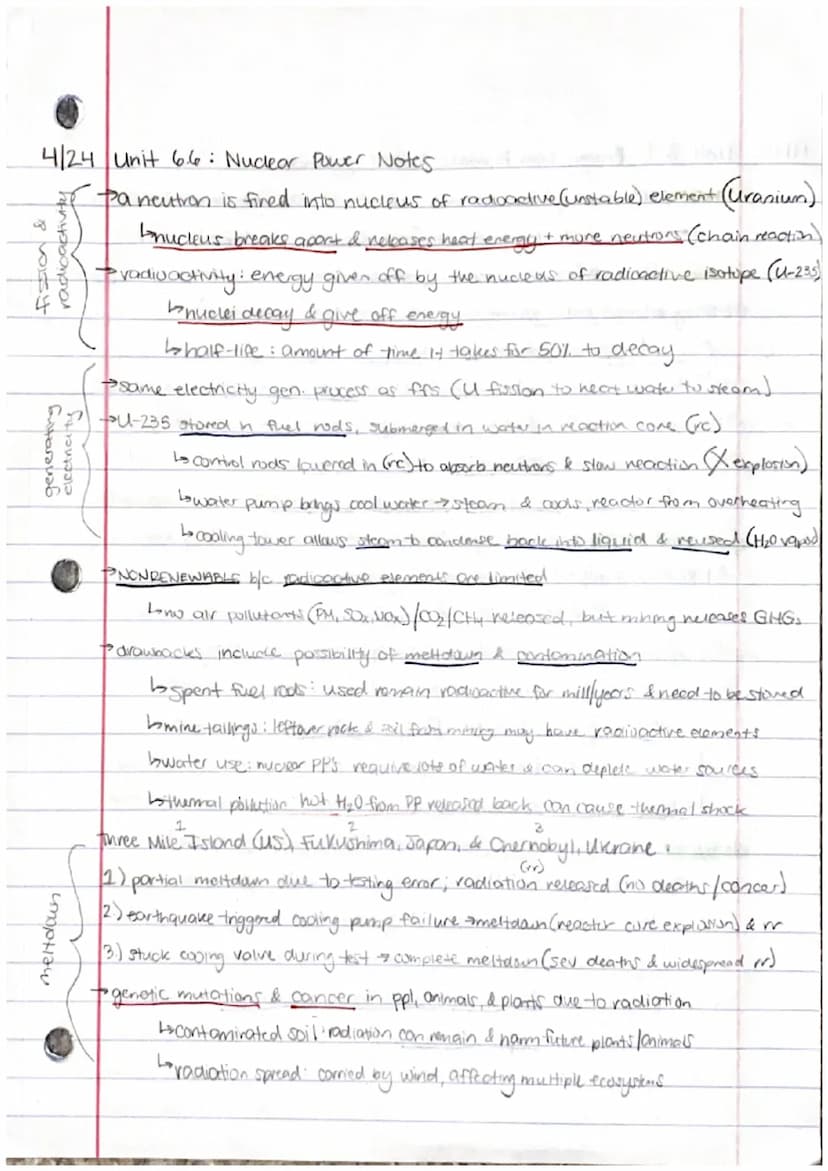 4/24 Unit 6.6: Nuclear Power Notes
fission & radioactivity
→a neutron is fired into nucleus of radioactive (unstable) element (Uranium)
↳nucleus breaks apart & releases heat energy + more neutrons (chain reaction)
→radioactivity: energy given off by the nucleus of radioactive isotope (U-235)
↳nuclei decay & give off energy
↳half-life: amount of time it takes for 50% to decay
generating electricity
→same electricity gen. process as ffs (U fission to heat water to steam)
→U-235 stored in fuel rods, submerged in water in reaction core (rc)
↳control rods lowered in (rc) to absorb neutrons & slow reaction (X explosion)
↳water pump brings cool water → steam & cools reactor from overheating
↳cooling tower allows steam to condense back into liquid & reused (H2O vapor)
→NONRENEWABLE b/c radioactive elements are limited
↳no air pollutants (PM, SOx, NOx)/CO2/CH4 released, but mining releases GHGs
→drawbacks include possibility of meltdown & contamination
↳spent fuel rods: used remain radioactive for mill/years & need to be stored
↳mine tailings: leftover rock & soil from mining may have radioactive elements
↳water use: nuclear PP's require lots of water & can deplete water sources
↳thermal pollution: hot H2O from PP released back can cause thermal shock
meltdown
1 2 3
Three Mile Island (US), Fukushima, Japan, & Chernobyl, Ukrane
(rr)
1) partial meltdown due to testing error; radiation released (no deaths/cancer)
2) earthquake triggered cooling pump failure → meltdown (reactor core explosion) & rr
3) stuck cooing valve during test → complete meltdown (sev deaths & widespread rr)
→genetic mutations & cancer in ppl, animals, & plants due to radiation
↳contamirated soil: radiation can remain & harm future plants/animals
↳radiation spread: carried by wind, affecting multiple ecosystems